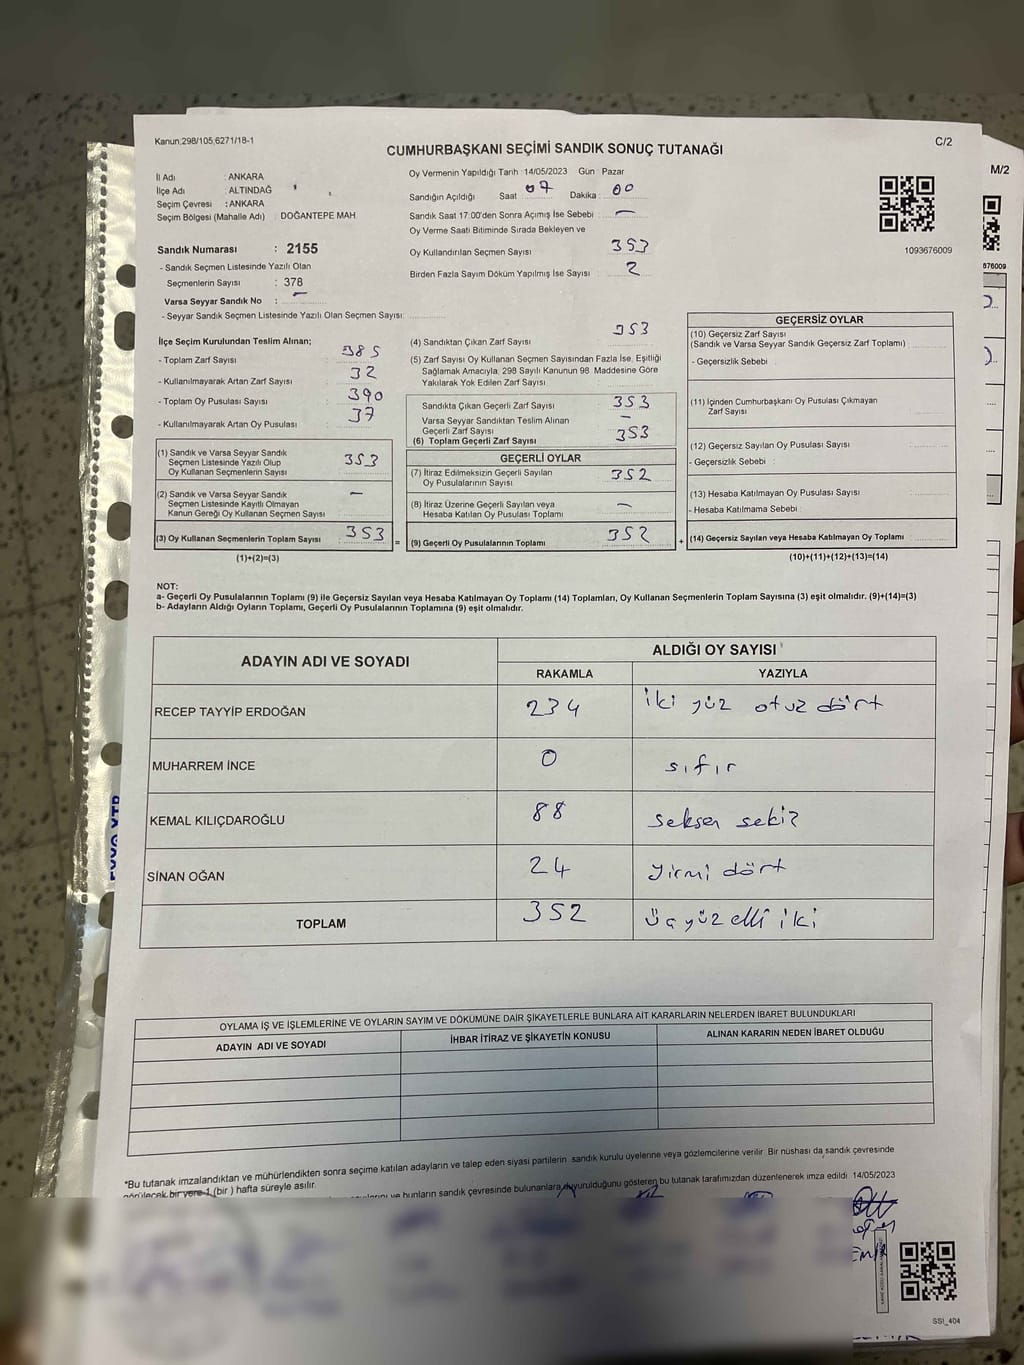 Kanun.298/105,6271/18-1
C/2
M/2
CUMHURBAŞKANI SEÇİMİ SANDIK SONUÇ TUTANAĞI
İl Adı : ANKARA
İlçe Adı : ALTINDAĞ
Seçim Çevresi : ANKARA
Seçim Bölgesi (Mahalle Adı) : DOĞANTEPE MAH.
Oy Vermenin Yapıldığı Tarih :14/05/2023 Gün : Pazar
Sandığın Açıldığı Saat : 07 Dakika : 00
Sandık Saat 17:00'den Sonra Açımış İse Sebebi : —
Oy Verme Saati Bitiminde Sırada Bekleyen ve
Oy Kullandırılan Seçmen Sayısı : 353
Birden Fazla Sayım Döküm Yapılmış İse Sayısı : 2
1093676009
676009
Sandık Numarası : 2155
- Sandık Seçmen Listesinde Yazılı Olan
Seçmenlerin Sayısı : 378
Varsa Seyyar Sandık No : —
- Seyyar Sandık Seçmen Listesinde Yazılı Olan Seçmen Sayısı:
İlçe Seçim Kurulundan Teslim Alınan;
- Toplam Zarf Sayısı : 385
- Kullanılmayarak Artan Zarf Sayısı : 32
- Toplam Oy Pusulası Sayısı : 390
- Kullanılmayarak Artan Oy Pusulası : 37
(1) Sandık ve Varsa Seyyar Sandık
Seçmen Listesinde Yazılı Olup
Oy Kullanan Seçmenlerin Sayısı : 353
(2) Sandık ve Varsa Seyyar Sandık
Seçmen Listesinde Kayıtlı Olmayan
Kanun Gereği Oy Kullanan Seçmen Sayısı : —
(3) Oy Kullanan Seçmenlerin Toplam Sayısı : 353
(1)+(2)=(3)
(4) Sandıktan Çıkan Zarf Sayısı : 353
(5) Zarf Sayısı Oy Kullanan Seçmen Sayısından Fazla İse, Eşitliği
Sağlamak Amacıyla, 298 Sayılı Kanunun 98. Maddesine Göre
Yakılarak Yok Edilen Zarf Sayısı :
Sandıkta Çıkan Geçerli Zarf Sayısı : 353
Varsa Seyyar Sandıktan Teslim Alınan
Geçerli Zarf Sayısı : —
(6) Toplam Geçerli Zarf Sayısı : 353
GEÇERLİ OYLAR
(7) İtiraz Edilmeksizin Geçerli Sayılan
Oy Pusulalarının Sayısı : 352
(8) İtiraz Üzerine Geçerli Sayılan veya
Hesaba Katılan Oy Pusulası Toplamı : —
= (9) Geçerli Oy Pusulalarının Toplamı : 352
GEÇERSİZ OYLAR
(10) Geçersiz Zarf Sayısı
(Sandık ve Varsa Seyyar Sandık Geçersiz Zarf Toplamı)
- Geçersizlik Sebebi :
(11) İçinden Cumhurbaşkanı Oy Pusulası Çıkmayan
Zarf Sayısı :
(12) Geçersiz Sayılan Oy Pusulası Sayısı :
- Geçersizlik Sebebi :
(13) Hesaba Katılmayan Oy Pusulası Sayısı :
- Hesaba Katılmama Sebebi :
+ (14) Geçersiz Sayılan veya Hesaba Katılmayan Oy Toplamı :
(10)+(11)+(12)+(13)=(14)
NOT:
a- Geçerli Oy Pusulalarının Toplamı (9) ile Geçersiz Sayılan veya Hesaba Katılmayan Oy Toplamı (14) Toplamları, Oy Kullanan Seçmenlerin Toplam Sayısına (3) eşit olmalıdır. (9)+(14)=(3)
b- Adayların Aldığı Oyların Toplamı, Geçerli Oy Pusulalarının Toplamına (9) eşit olmalıdır.
ADAYIN ADI VE SOYADI ALDIĞI OY SAYISI
RAKAMLA YAZIYLA
RECEP TAYYİP ERDOĞAN 234 iki yüz otuz dört
MUHARREM İNCE 0 sıfır
KEMAL KILIÇDAROĞLU 88 seksen sekiz
SİNAN OĞAN 24 yirmi dört
TOPLAM 352 üç yüz elli iki
OYLAMA İŞ VE İŞLEMLERİNE VE OYLARIN SAYIM VE DÖKÜMÜNE DAİR ŞİKAYETLERLE BUNLARA AİT KARARLARIN NELERDEN İBARET BULUNDUKLARI
ADAYIN ADI VE SOYADI İHBAR İTİRAZ VE ŞİKAYETİN KONUSU ALINAN KARARIN NEDEN İBARET OLDUĞU
*Bu tutanak imzalandıktan ve mühürlendikten sonra seçime katılan adayların ve talep eden siyasi partilerin sandık kurulu üyelerine veya gözlemcilerine verilir. Bir nüshası da sandık çevresinde
görülecek bir yere 1 (bir ) hafta süreyle asılır.
ve bunların sandık çevresinde bulunanlara duyurulduğunu gösteren bu tutanak tarafımızdan düzenlenerek imza edildi. 14/05/2023
SSI_404